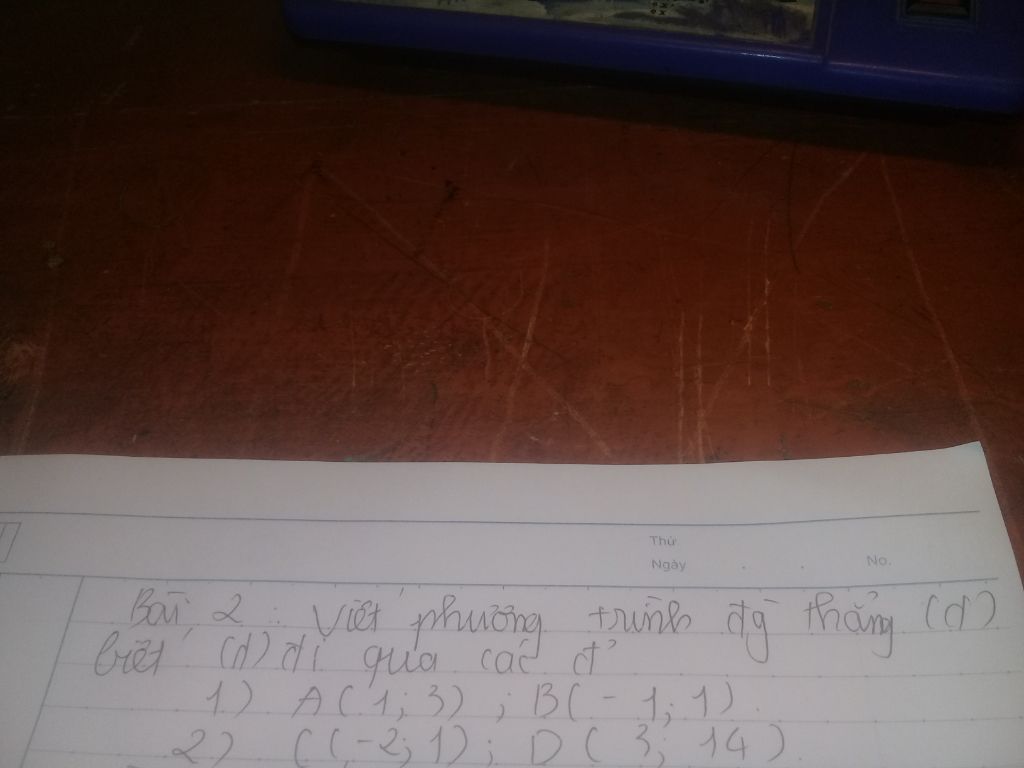 Thứ
Ngày . . No.
Bài 2 : Viết phương trình đg thẳng (d)
biết (d) đi qua các đ'
1) A(1; 3) ; B(-1; 1).
2) C(-2; 1); D(3; 14).